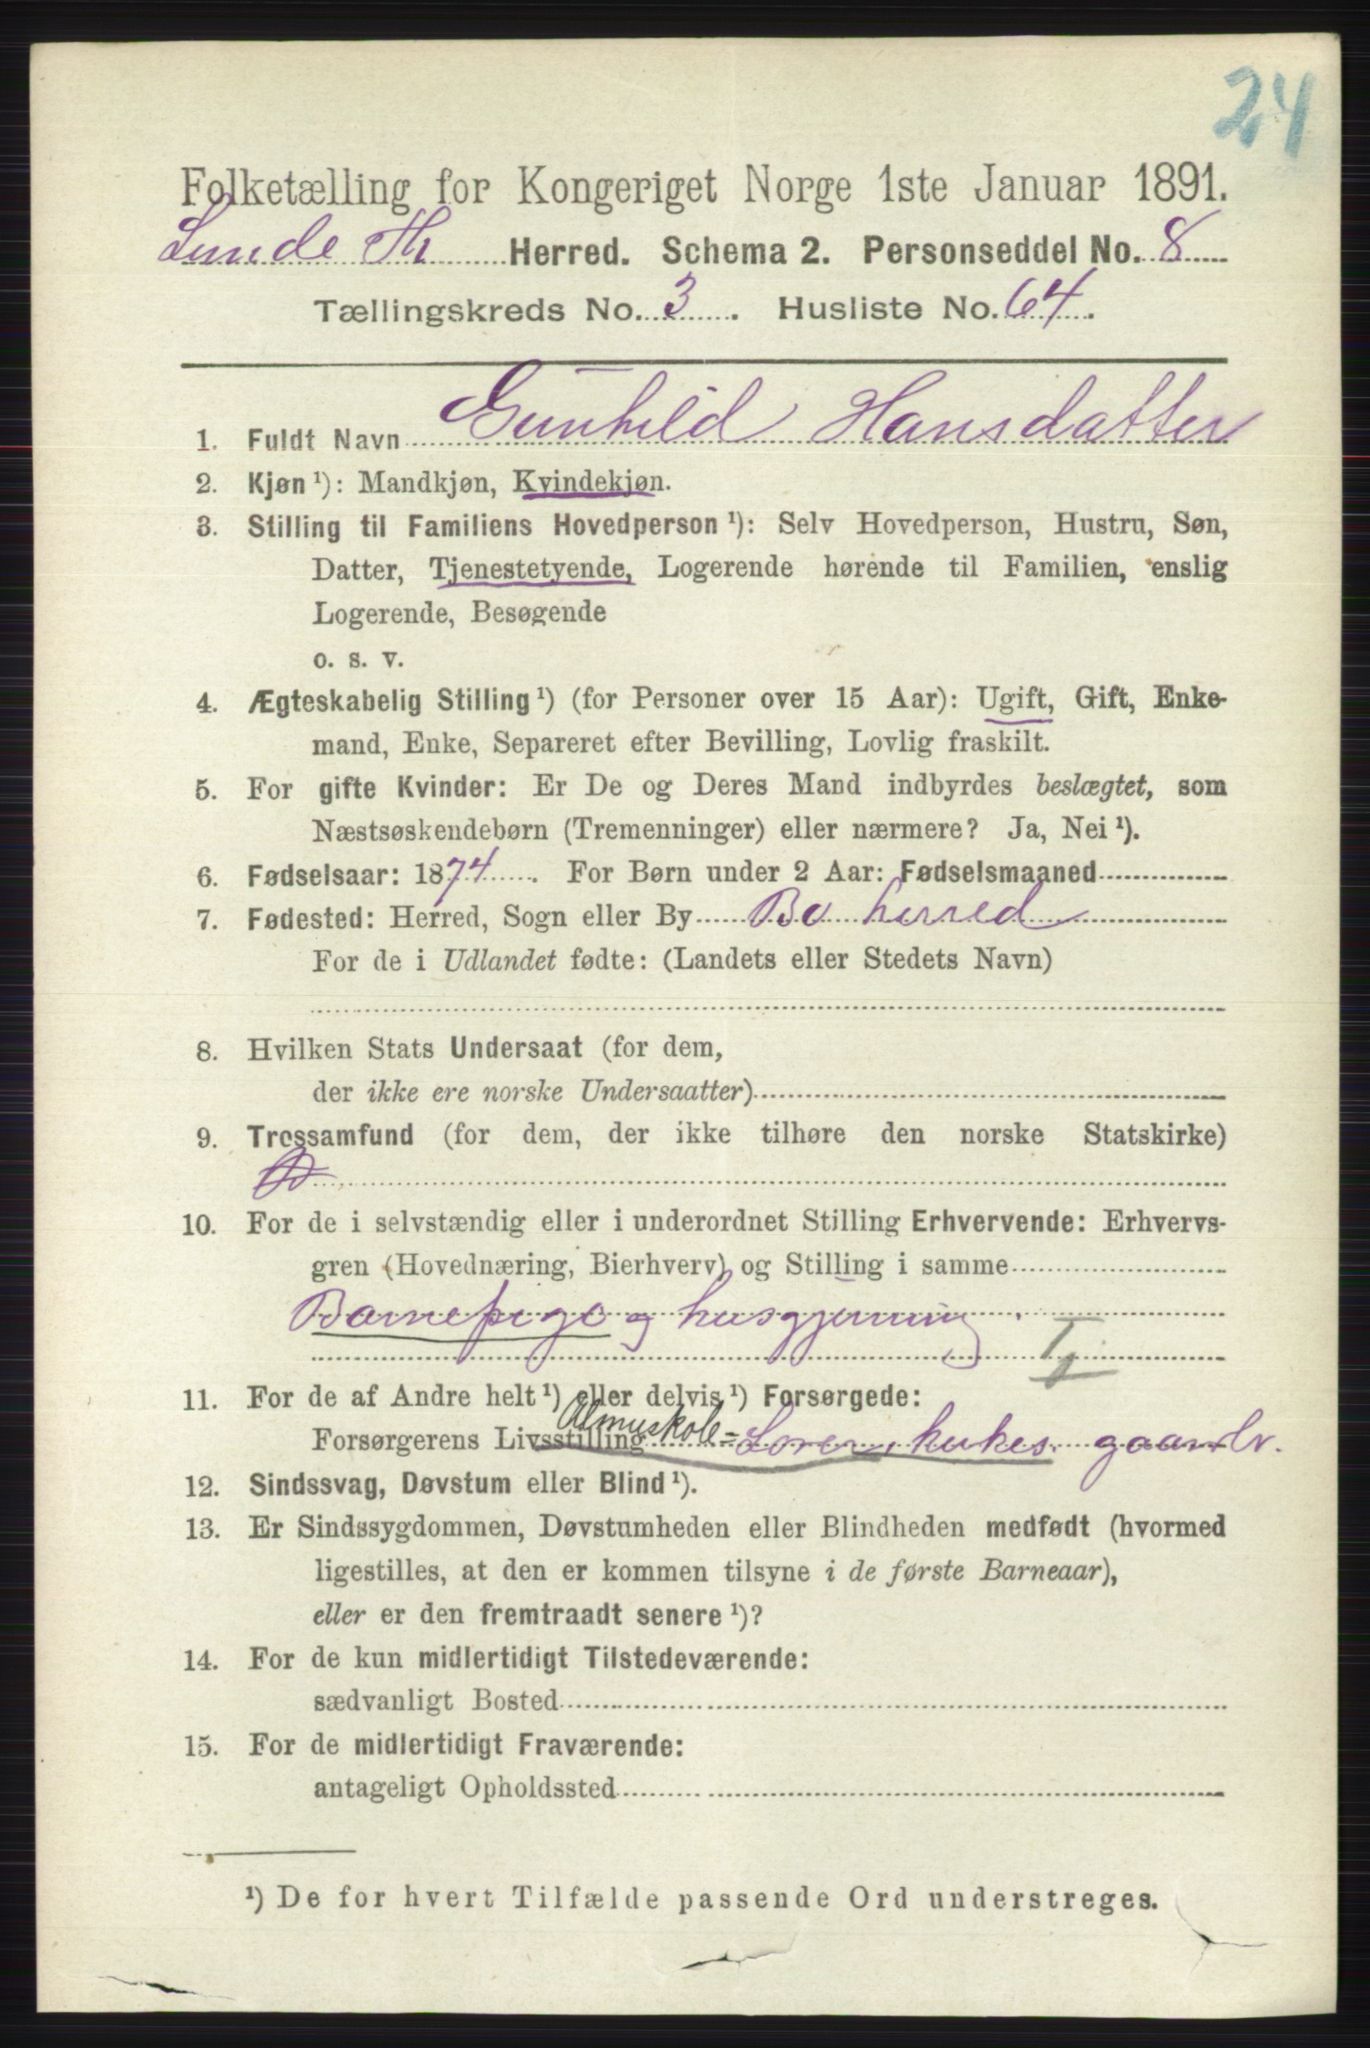 24
Folketælling for Kongeriget Norge 1ste Januar 1891.
Lunde Th Herred. Schema 2. Personseddel No. 8
Tællingskreds No. 3. Husliste No. 64.
1. Fuldt Navn Gunhild Hansdatter
2. Kjøn ¹): Mandkjøn, Kvindekjøn.
3. Stilling til Familiens Hovedperson ¹): Selv Hovedperson, Hustru, Søn,
Datter, Tjenestetyende, Logerende hørende til Familien, enslig
Logerende, Besøgende
o. s. v.
4. Ægteskabelig Stilling ¹) (for Personer over 15 Aar): Ugift, Gift, Enke-
mand, Enke, Separeret efter Bevilling, Lovlig fraskilt.
5. For gifte Kvinder: Er De og Deres Mand indbyrdes beslægtet, som
Næstsøskendebørn (Tremenninger) eller nærmere? Ja, Nei ¹).
6. Fødselsaar: 1874. For Børn under 2 Aar: Fødselsmaaned
7. Fødested: Herred, Sogn eller By Bø herred
For de i Udlandet fødte: (Landets eller Stedets Navn)
8. Hvilken Stats Undersaat (for dem,
der ikke ere norske Undersaatter)
9. Trossamfund (for dem, der ikke tilhøre den norske Statskirke)
10. For de i selvstændig eller i underordnet Stilling Erhvervende: Erhvervs-
gren (Hovednæring, Bierhverv) og Stilling i samme
Barnepige og husgjerning.
11. For de af Andre helt ¹) eller delvis ¹) Forsørgede:
Forsørgerens Livsstilling Almuskole= gaardbr.
12. Sindssvag, Døvstum eller Blind ¹).
13. Er Sindssygdommen, Døvstumheden eller Blindheden medfødt (hvormed
ligestilles, at den er kommen tilsyne i de første Barneaar),
eller er den fremtraadt senere ¹)?
14. For de kun midlertidigt Tilstedeværende:
sædvanligt Bosted
15. For de midlertidigt Fraværende:
antageligt Opholdssted
¹) De for hvert Tilfælde passende Ord understreges.